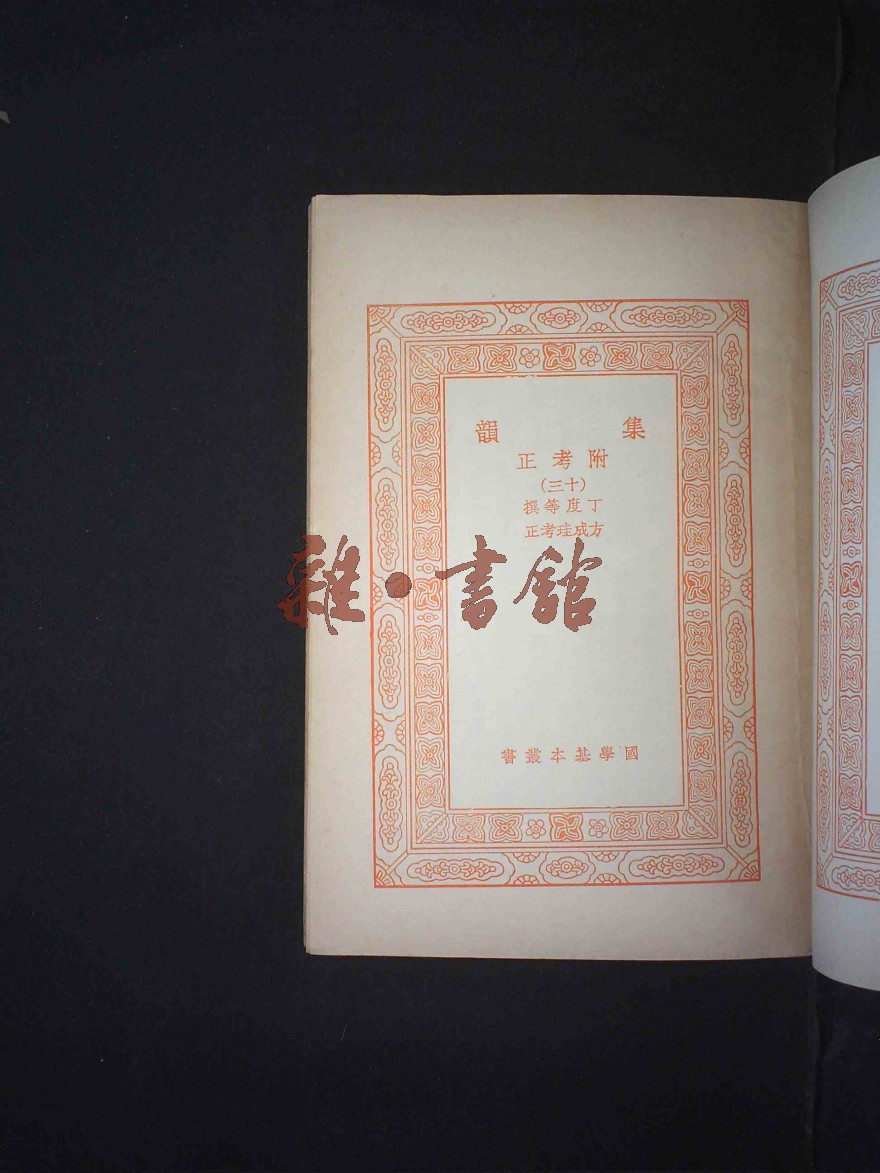 集韻
附考正
(十三)
丁度等撰
方成珪考正
雜·書館
國學基本叢書